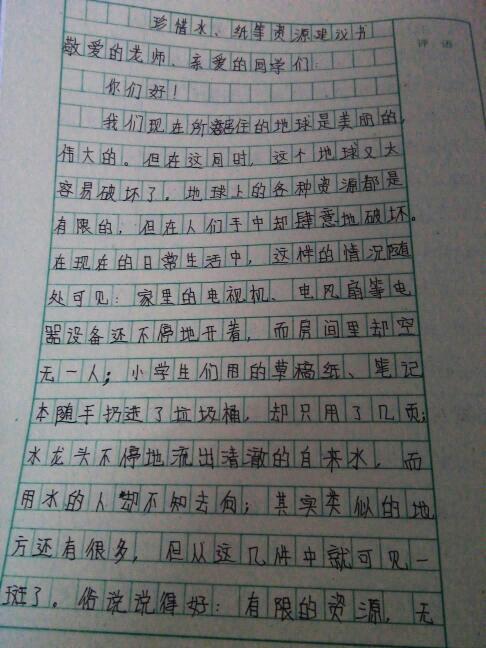 珍惜水、纸等资源建议书
评语
敬爱的老师、亲爱的同学们：
你们好！
我们现在所居住的地球是美丽的，
伟大的。但在这同时，这个地球又太
容易破坏了。地球上的各种资源都是
有限的，但在人们手中却肆意地破坏。
在现在的日常生活中，这样的情况随
处可见：家里的电视机、电风扇等电
器设备还不停地开着，而房间里却空
无一人；小学生们用的草稿纸、笔记
本随手扔进了垃圾桶，却只用了几页；
水龙头不停地流出清澈的自来水，而
用水的人却不知去向；其实类似的地
方还有很多，但从这几件中就可见一
斑了。俗说说得好：有限的资源，无